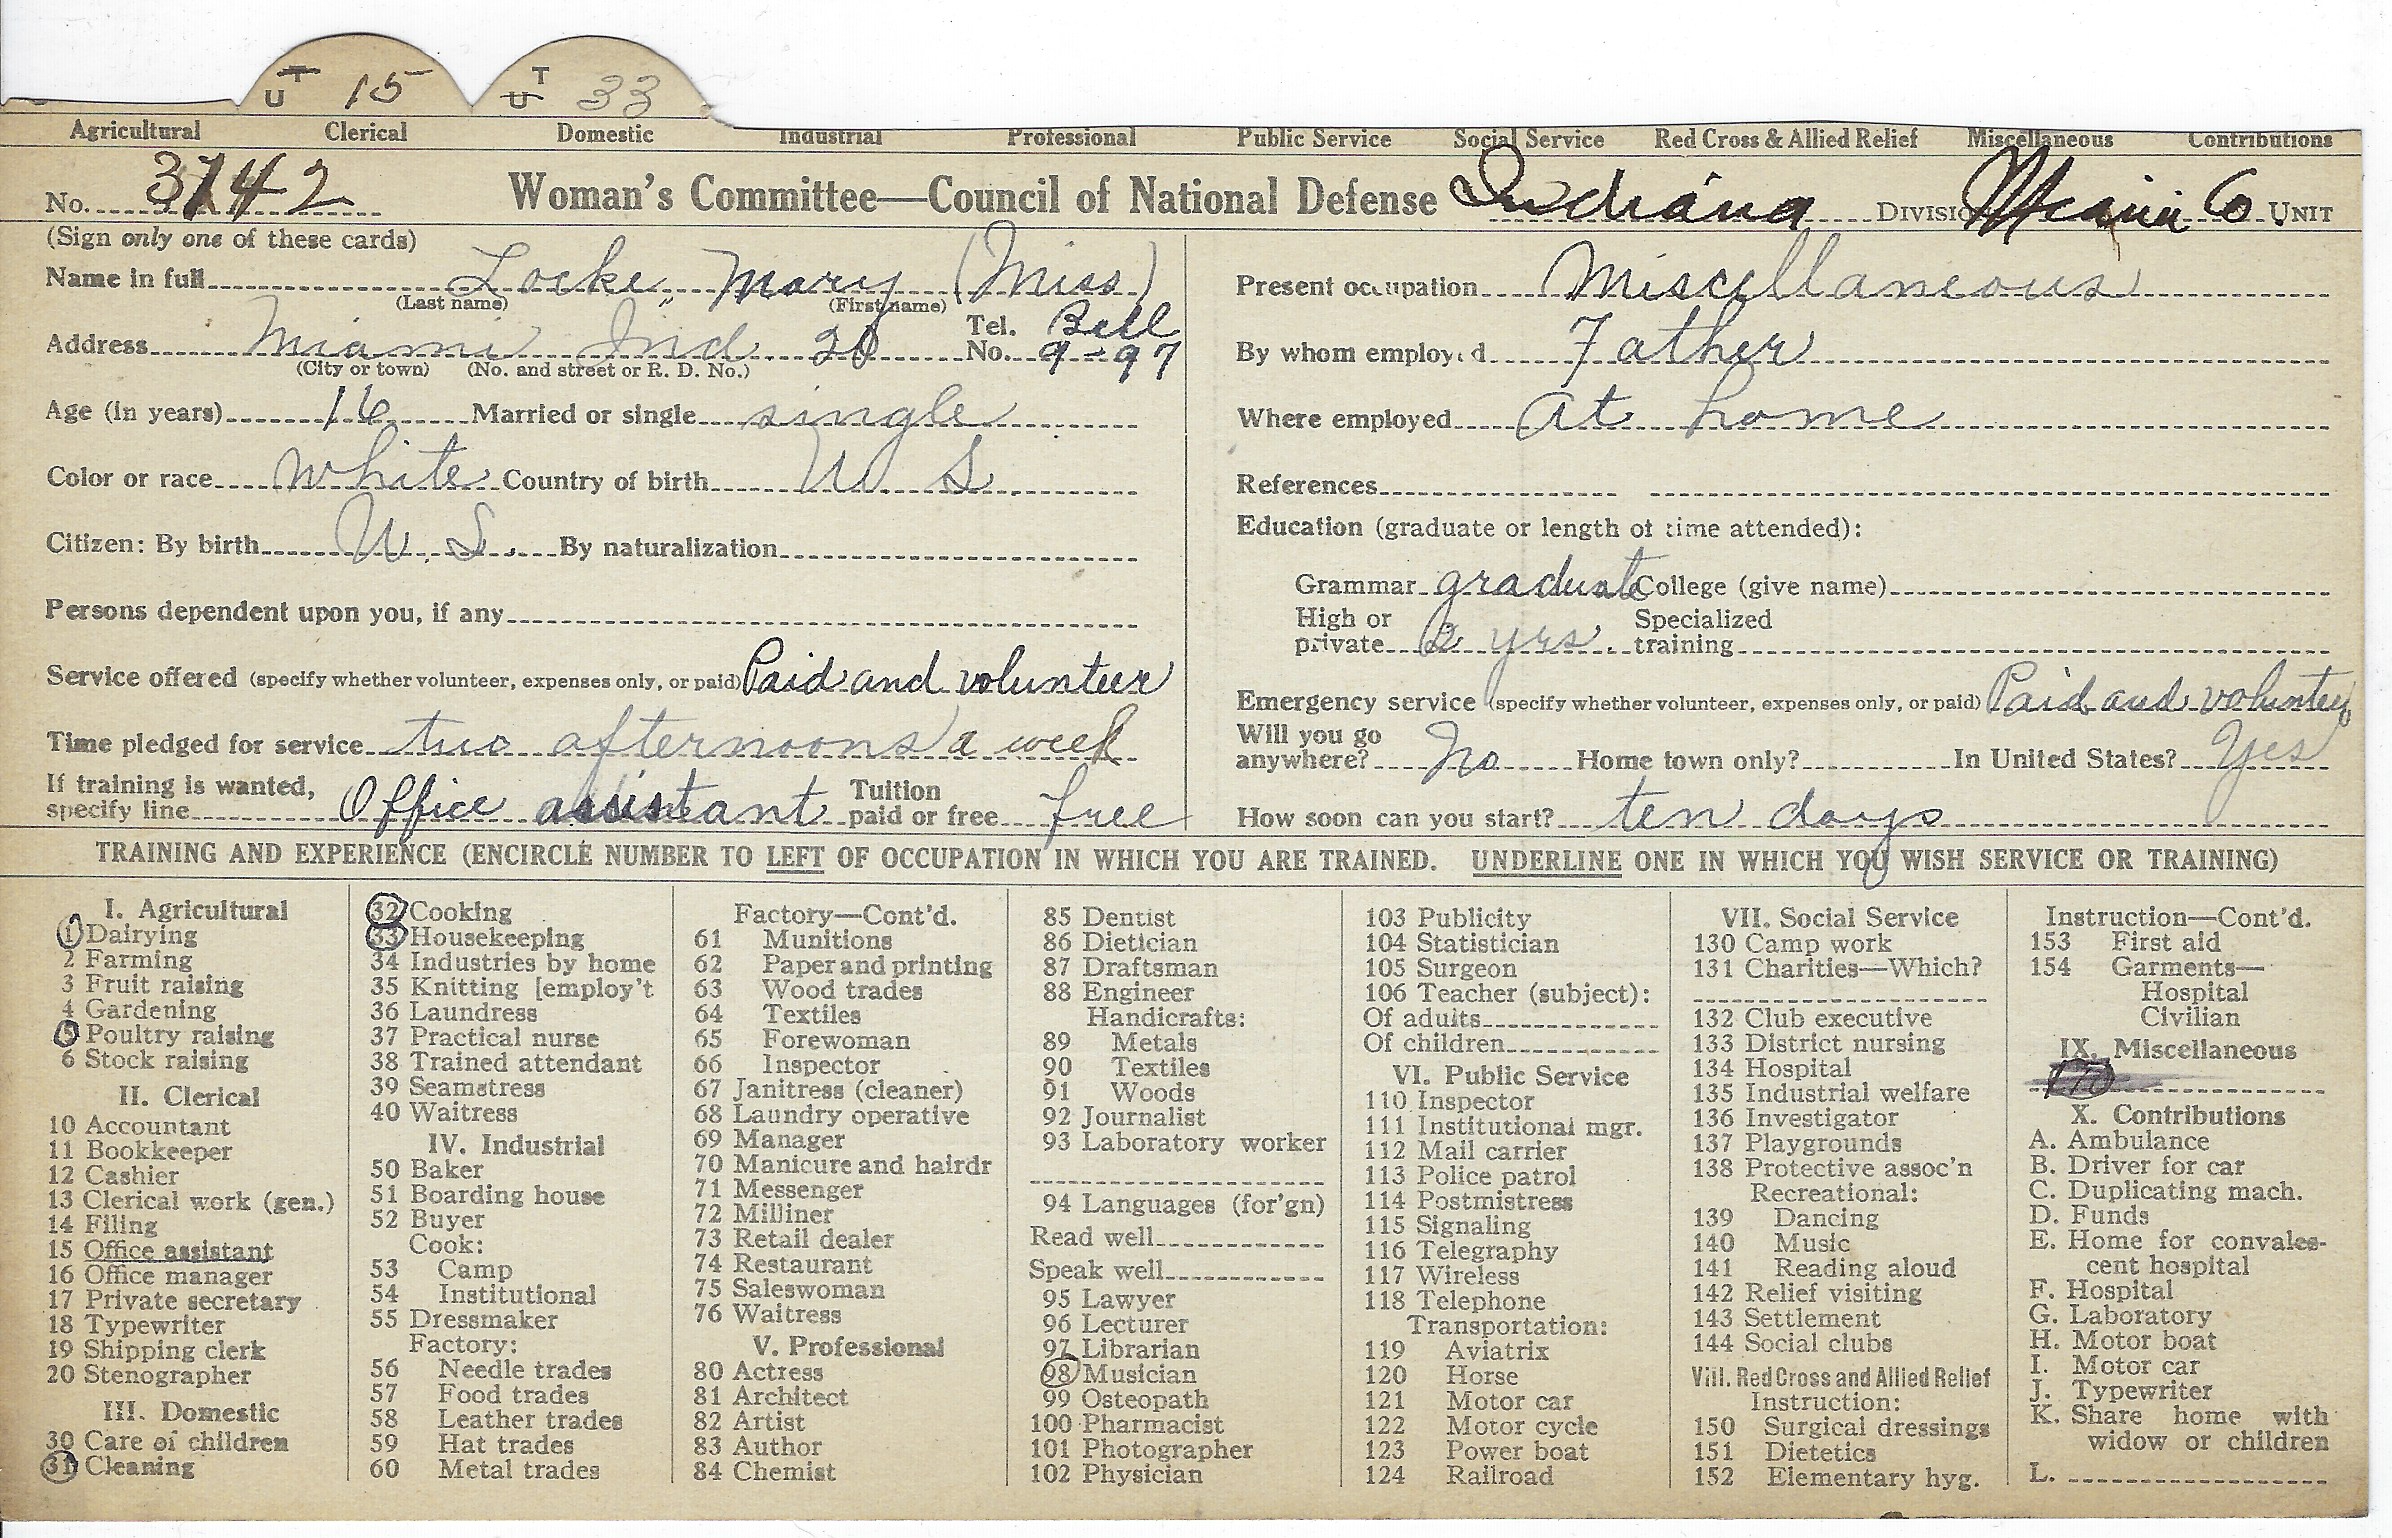 T U 15 T U 33
Agricultural Clerical Domestic Industrial Professional Public Service Social Service Red Cross & Allied Relief Miscellaneous Contributions
No. 3742 Woman's Committee—Council of National Defense Indiana DIVISION Miami Co UNIT
(Sign only one of these cards)
Name in full Locke, Mary (Miss)
(Last name) (First name)
Address Miami Ind 20 Tel. No. Bell 9-97
(City or town) (No. and street or R. D. No.)
Age (in years) 16 Married or single single
Color or race white Country of birth U S
Citizen: By birth U. S. By naturalization
Persons dependent upon you, if any
Service offered (specify whether volunteer, expenses only, or paid) Paid and volunteer
Time pledged for service two afternoons a week
If training is wanted, specify line Office assistant Tuition paid or free free
Present occupation Miscellaneous
By whom employed Father
Where employed At home
References
Education (graduate or length of time attended):
Grammar graduate College (give name)
High or private 2 yrs. Specialized training
Emergency service (specify whether volunteer, expenses only, or paid) Paid and volunteer
Will you go anywhere? No Home town only? In United States? Yes
How soon can you start? ten days
TRAINING AND EXPERIENCE (ENCIRCLE NUMBER TO LEFT OF OCCUPATION IN WHICH YOU ARE TRAINED. UNDERLINE ONE IN WHICH YOU WISH SERVICE OR TRAINING)
I. Agricultural
1 Dairying
2 Farming
3 Fruit raising
4 Gardening
5 Poultry raising
6 Stock raising
II. Clerical
10 Accountant
11 Bookkeeper
12 Cashier
13 Clerical work (gen.)
14 Filing
15 Office assistant
16 Office manager
17 Private secretary
18 Typewriter
19 Shipping clerk
20 Stenographer
III. Domestic
30 Care of children
31 Cleaning
32 Cooking
33 Housekeeping
34 Industries by home
35 Knitting [employ't
36 Laundress
37 Practical nurse
38 Trained attendant
39 Seamstress
40 Waitress
IV. Industrial
50 Baker
51 Boarding house
52 Buyer
Cook:
53 Camp
54 Institutional
55 Dressmaker
Factory:
56 Needle trades
57 Food trades
58 Leather trades
59 Hat trades
60 Metal trades
Factory—Cont'd.
61 Munitions
62 Paper and printing
63 Wood trades
64 Textiles
65 Forewoman
66 Inspector
67 Janitress (cleaner)
68 Laundry operative
69 Manager
70 Manicure and hairdr
71 Messenger
72 Milliner
73 Retail dealer
74 Restaurant
75 Saleswoman
76 Waitress
V. Professional
80 Actress
81 Architect
82 Artist
83 Author
84 Chemist
85 Dentist
86 Dietician
87 Draftsman
88 Engineer
Handicrafts:
89 Metals
90 Textiles
91 Woods
92 Journalist
93 Laboratory worker
94 Languages (for'gn)
Read well
Speak well
95 Lawyer
96 Lecturer
97 Librarian
98 Musician
99 Osteopath
100 Pharmacist
101 Photographer
102 Physician
103 Publicity
104 Statistician
105 Surgeon
106 Teacher (subject):
Of adults
Of children
VI. Public Service
110 Inspector
111 Institutional mgr.
112 Mail carrier
113 Police patrol
114 Postmistress
115 Signaling
116 Telegraphy
117 Wireless
118 Telephone
Transportation:
119 Aviatrix
120 Horse
121 Motor car
122 Motor cycle
123 Power boat
124 Railroad
VII. Social Service
130 Camp work
131 Charities—Which?
132 Club executive
133 District nursing
134 Hospital
135 Industrial welfare
136 Investigator
137 Playgrounds
138 Protective assoc'n
Recreational:
139 Dancing
140 Music
141 Reading aloud
142 Relief visiting
143 Settlement
144 Social clubs
VIII. Red Cross and Allied Relief
Instruction:
150 Surgical dressings
151 Dietetics
152 Elementary hyg.
Instruction—Cont'd.
153 First aid
154 Garments—
Hospital
Civilian
IX. Miscellaneous
170
X. Contributions
A. Ambulance
B. Driver for car
C. Duplicating mach.
D. Funds
E. Home for convales-
cent hospital
F. Hospital
G. Laboratory
H. Motor boat
I. Motor car
J. Typewriter
K. Share home with
widow or children
L.